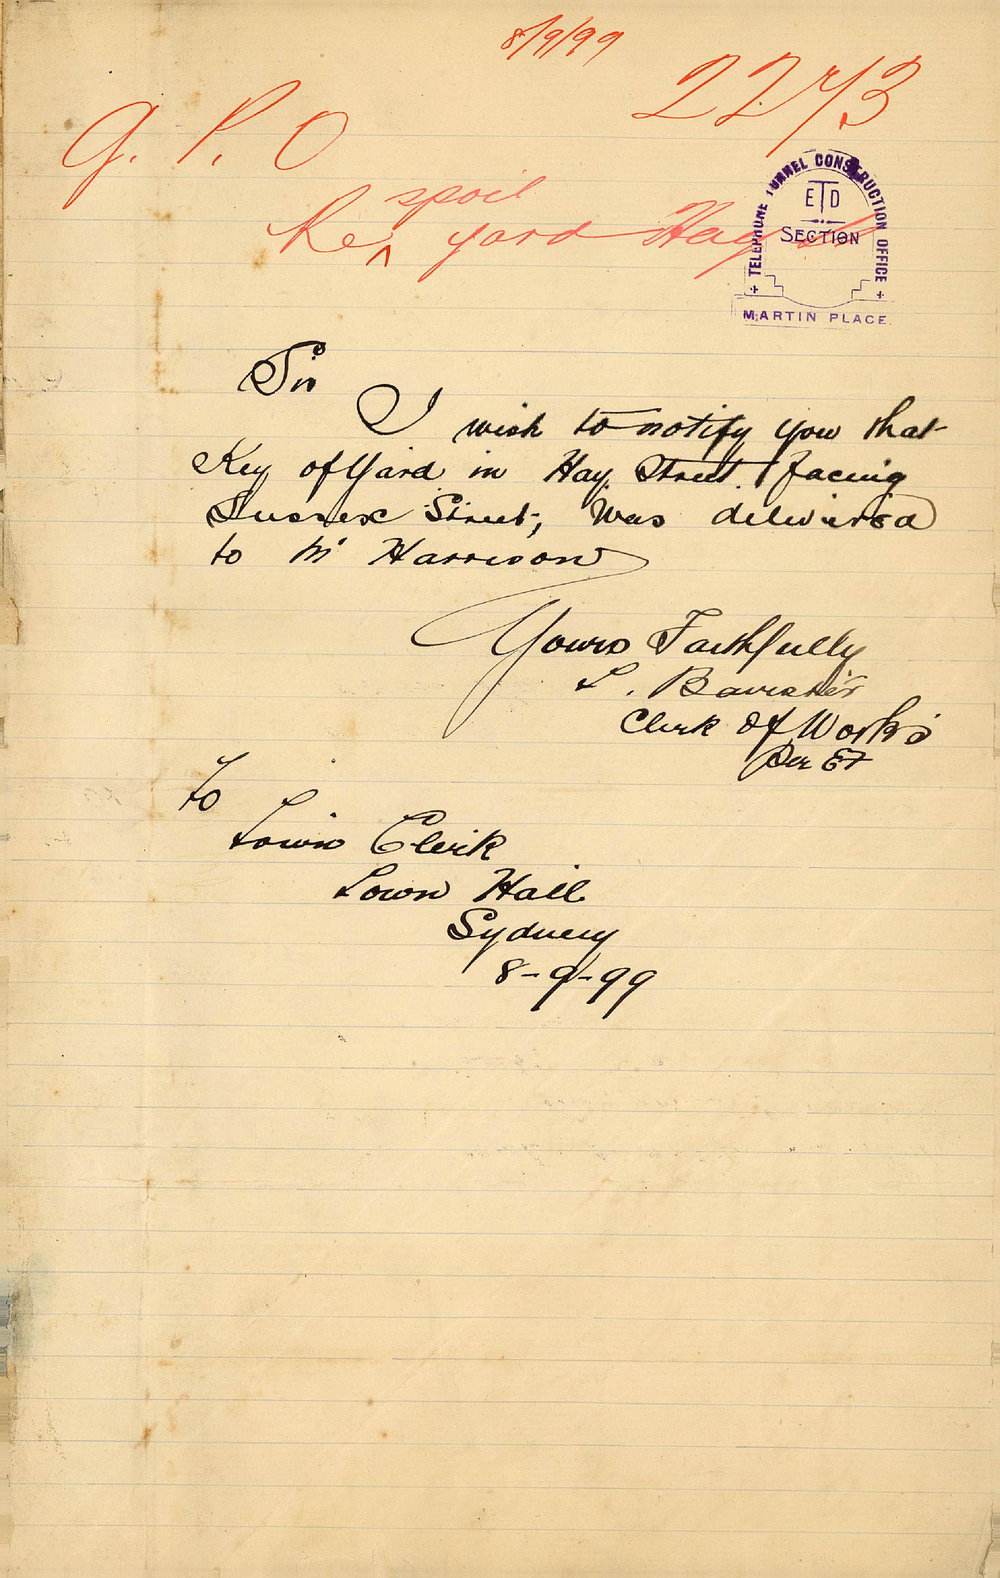 8/9/99
G. P. O
Re ^ spoil yard Hay St
TELEPHONE TUNNEL CONSTRUCTION OFFICE
ETD
SECTION
MARTIN PLACE
Sir
I wish to notify you that
Key of Yard in Hay Street facing
Sussex Street, was delivered
to Mr Harrison
Yours Faithfully
Clerk of Works
Per
To
Town Clerk
Town Hall
Sydney
8-9-99